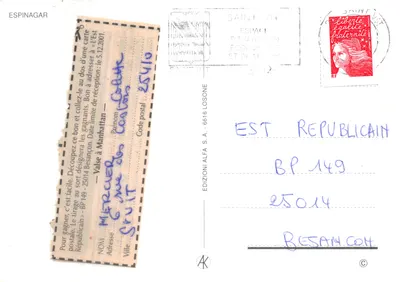 ESPINAGAR
Pour gagner, c'est facile. Découpez ce bon et collez-le au dos d'une carte
postale. Le tirage au sort désignera les gagnants. Bon à adresser à « l'Est
Républicain » - BP 149 - 25014 Besançon. Date limite de réception : le 5.12.2001.
— Value à Manhattan —
NOM MERCIER Prénom Colette
Adresse 6, rue des Castors
Ville ST VIT Code postal 25410
EDIZIONI ALFA S. A. 6616 LOSONE
liberté
égalité
fraternité
RF
EST REPUBLICAIN
BP 149
25014
BESANCON
AK
©